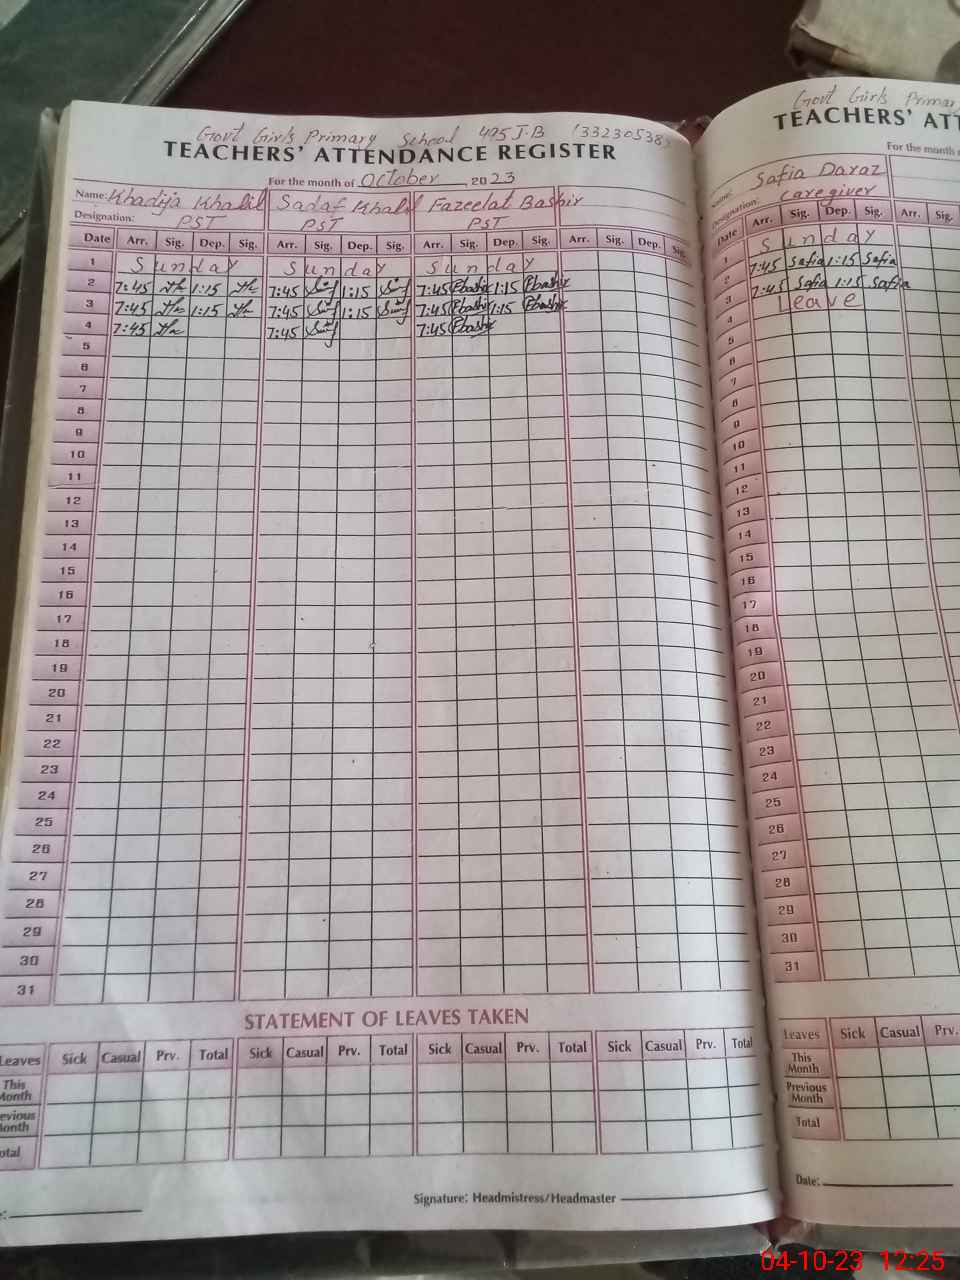 Govt Girls Primary School 495 J.B (33230538
TEACHERS' ATTENDANCE REGISTER
For the month of October, 2023
Name: Khadija Khalil Sadaf Khalil Fazeelat Bashir
Designation: PST PST PST
Date Arr. Sig. Dep. Sig. Arr. Sig. Dep. Sig. Arr. Sig. Dep. Sig. Arr. Sig. Dep. Sig.
1 Sunday Sunday Sunday
2 7:45 1:15 7:45 1:15 7:45 Fbashir 1:15 Fbashir
3 7:45 1:15 7:45 1:15 7:45 Fbashir 1:15 Fbashir
4 7:45 7:45 7:45 Fbashir
5
6
7
8
9
10
11
12
13
14
15
16
17
18
19
20
21
22
23
24
25
26
27
28
29
30
31
STATEMENT OF LEAVES TAKEN
Leaves Sick Casual Prv. Total Sick Casual Prv. Total Sick Casual Prv. Total Sick Casual Prv. Total
This
Month
Previous
Month
Total
Signature: Headmistress/Headmaster
Govt Girls Primary
TEACHERS' ATT
For the month
Name: Safia Daraz
Designation: caregiver
Date Arr. Sig. Dep. Sig. Arr. Sig.
1 Sunday
2 7:45 Safia 1:15 Safia
3 7:45 Safia 1:15 Safia
4 Leave
5
6
7
8
9
10
11
12
13
14
15
16
17
18
19
20
21
22
23
24
25
26
27
28
29
30
31
Leaves Sick Casual Prv.
This
Month
Previous
Month
Total
Date:
04-10-23 12:25